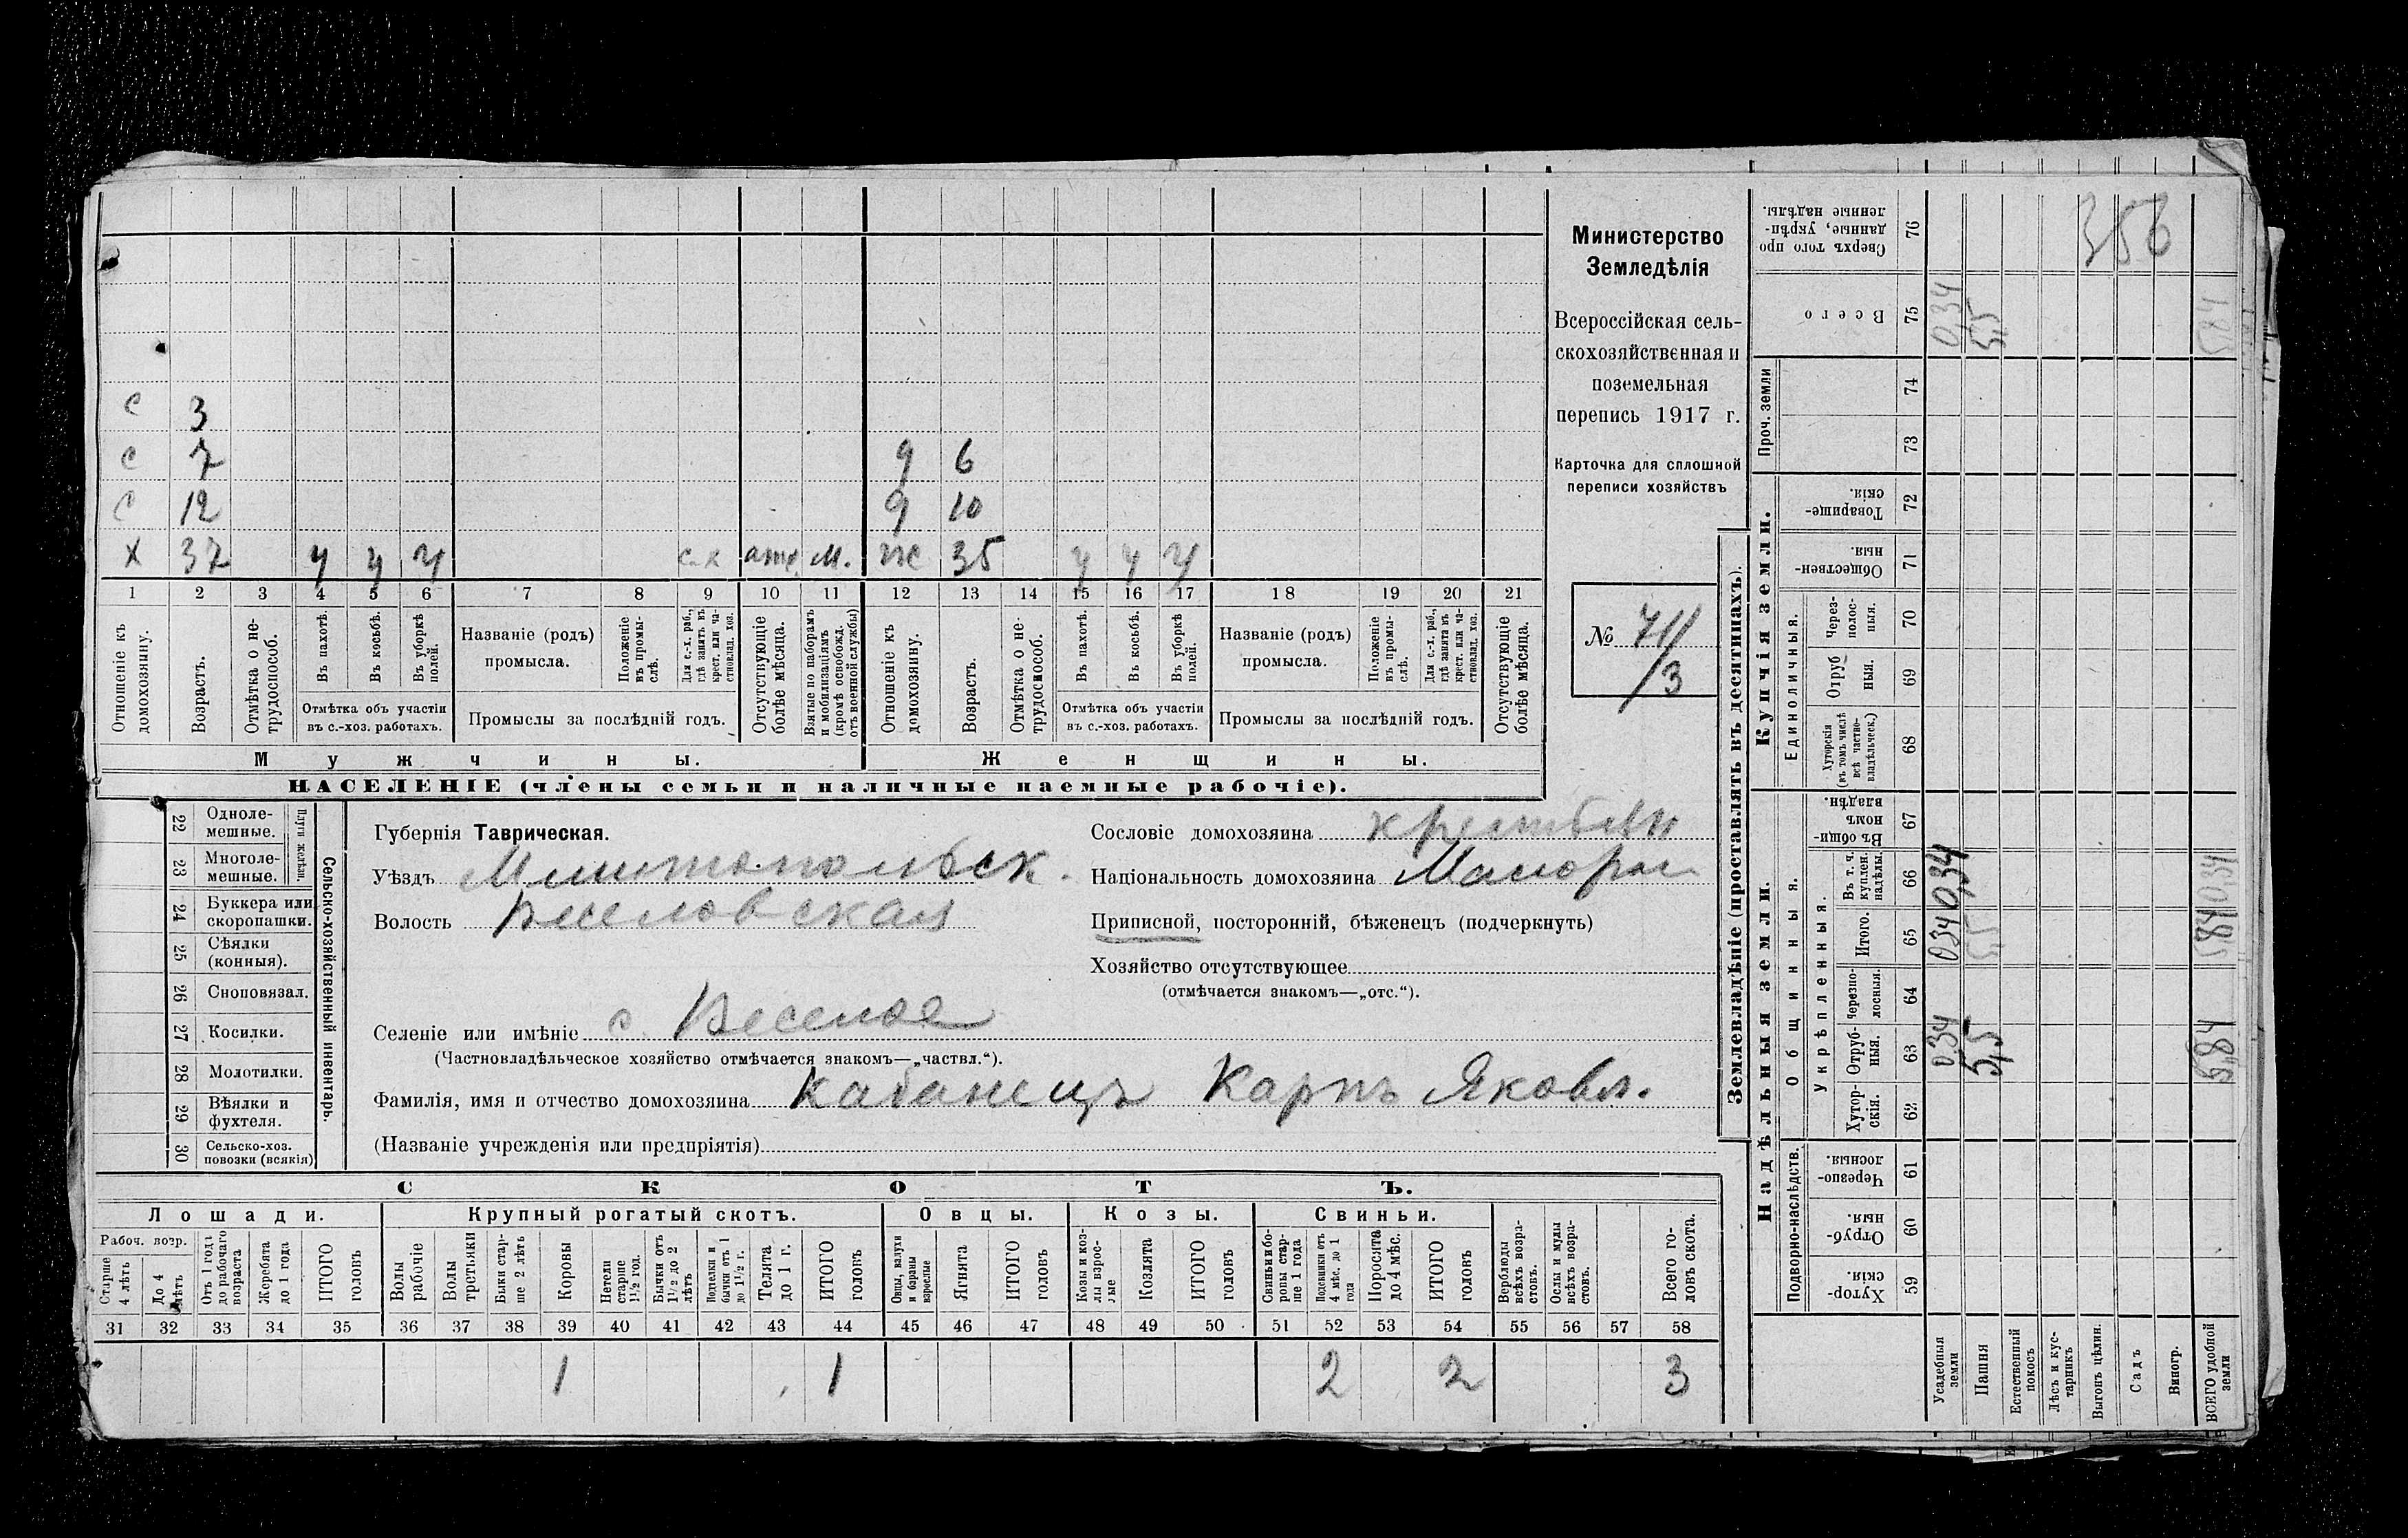 356
с 3
с 7 9 6
с 12 9 10
х 37 у у у с.х м. ж 35 у у у
1 2 3 4 5 6 7 8 9 10 11 12 13 14 15 16 17 18 19 20 21
Отношеніе къ домохозяину.
Возрастъ.
Отмѣтка о не-трудоспособ.
Въ пахотѣ.
Въ косьбѣ.
Въ уборкѣ полей.
Отмѣтка объ участіи въ с.-хоз. работахъ.
Названіе (родъ) промысла.
Положеніе въ промы-слѣ.
Для с.-х. раб., гдѣ занятъ въ крест. или ча-стновлад. хоз.
Промыслы за послѣдній годъ.
Отсутствующіе болѣе мѣсяца.
Взятые по наборамъ и мобилизаціямъ (кромѣ освобожд. отъ военной службы)
Отношеніе къ домохозяину.
Возрастъ.
Отмѣтка о не-трудоспособ.
Въ пахотѣ.
Въ косьбѣ.
Въ уборкѣ полей.
Отмѣтка объ участіи въ с.-хоз. работахъ.
Названіе (родъ) промысла.
Положеніе въ промы-слѣ.
Для с.-х. раб., гдѣ занята въ крест. или ча-стновлад. хоз.
Промыслы за послѣдній годъ.
Отсутствующіе болѣе мѣсяца.
Мужчины.
Женщины.
НАСЕЛЕНІЕ (члены семьи и наличные наемные рабочіе).
Министерство
Земледѣлія
Всероссійская сель-
скохозяйственная и
поземельная
перепись 1917 г.
Карточка для сплошной
переписи хозяйствъ
№
/3
22 Одноле-мешные.
23 Многоле-мешные.
Плуги желѣзн.
24 Буккера или скоропашки.
25 Сѣялки (конныя).
26 Сноповязал.
27 Косилки.
28 Молотилки.
29 Вѣялки и фухтеля.
30 Сельско-хоз. повозки (всякія)
Сельско-хозяйственный инвентарь.
Губернія Таврическая.
Уѣздъ Мелитопольск.
Волость Веселовская
Селеніе или имѣніе с. Веселое
(Частновладѣльческое хозяйство отмѣчается знакомъ—„частвл.“).
Фамилія, имя и отчество домохозяина Кабанецъ Карпъ Яковл.
(Названіе учрежденія или предпріятія)
Сословіе домохозяина
Національность домохозяина Малорос.
Приписной, посторонній, бѣженецъ (подчеркнуть)
Хозяйство отсутствующее
(отмѣчается знакомъ—„отс.“).
СКОТЪ.
Лошади. Крупный рогатый скотъ. Овцы. Козы. Свиньи.
Рабоч. возр.
Старше 4 лѣтъ
До 4 лѣтъ
Отъ 1 года до рабочаго возраста
Жеребята до 1 года
ИТОГО головъ
Волы рабочіе
Волы третьяки
Быки стар-ше 2 лѣтъ
Коровы
Нетели старше 1½ год.
Бычки отъ 1½ до 2 лѣтъ
Подтелки и бычки отъ 1 до 1½ г.
Телята до 1 г.
ИТОГО головъ
Овцы, валухи и бараны взрослые
Ягнята
ИТОГО головъ
Козы и коз-лы взрос-лые
Козлята
ИТОГО головъ
Свиньи и бо-ровы стар-ше 1 года
Подсвинки отъ 4 мѣс. до 1 года
Поросята до 4 мѣс.
ИТОГО головъ
Верблюды всѣхъ возра-стовъ.
Ослы и мулы всѣхъ возра-стовъ.
Всего го-ловъ скота.
31 32 33 34 35 36 37 38 39 40 41 42 43 44 45 46 47 48 49 50 51 52 53 54 55 56 57 58
1 1 2 2 3
Землевладѣніе (проставлять въ десятинахъ).
Надѣльныя земли.
Купчія земли.
Проч. земли
Подворно-наслѣдств.
Общинныя.
Укрѣпленныя.
Единоличныя.
Хутор-скія. 59
Отруб-ныя. 60
Черезпо-лосныя. 61
Хутор-скія. 62
Отруб-ныя. 63 0,34 5,5 5,84
Черезпо-лосныя. 64
Итого. 65 0,34 5,5 5,84
Въ т. ч. куплен. надѣлы. 66 0,34 0,34
Въ общин-номъ владѣн. 67
Хуторскія (въ томъ числѣ всѣ частно-владѣльческ.) 68
Отруб-ныя. 69
Через-полос-ныя. 70
Обществен-ныя. 71
Товарище-скія. 72
73
74
Всего 75 0,34 5,5 5,84
Сверхъ того про-данные, укрѣп-ленные надѣлы. 76
Усадебныя земли
Пашня
Естественный покосъ
Лѣсъ и кус-тарникъ
Выгонъ цѣлин.
Садъ
Виногр.
ВСЕГО удобной земли